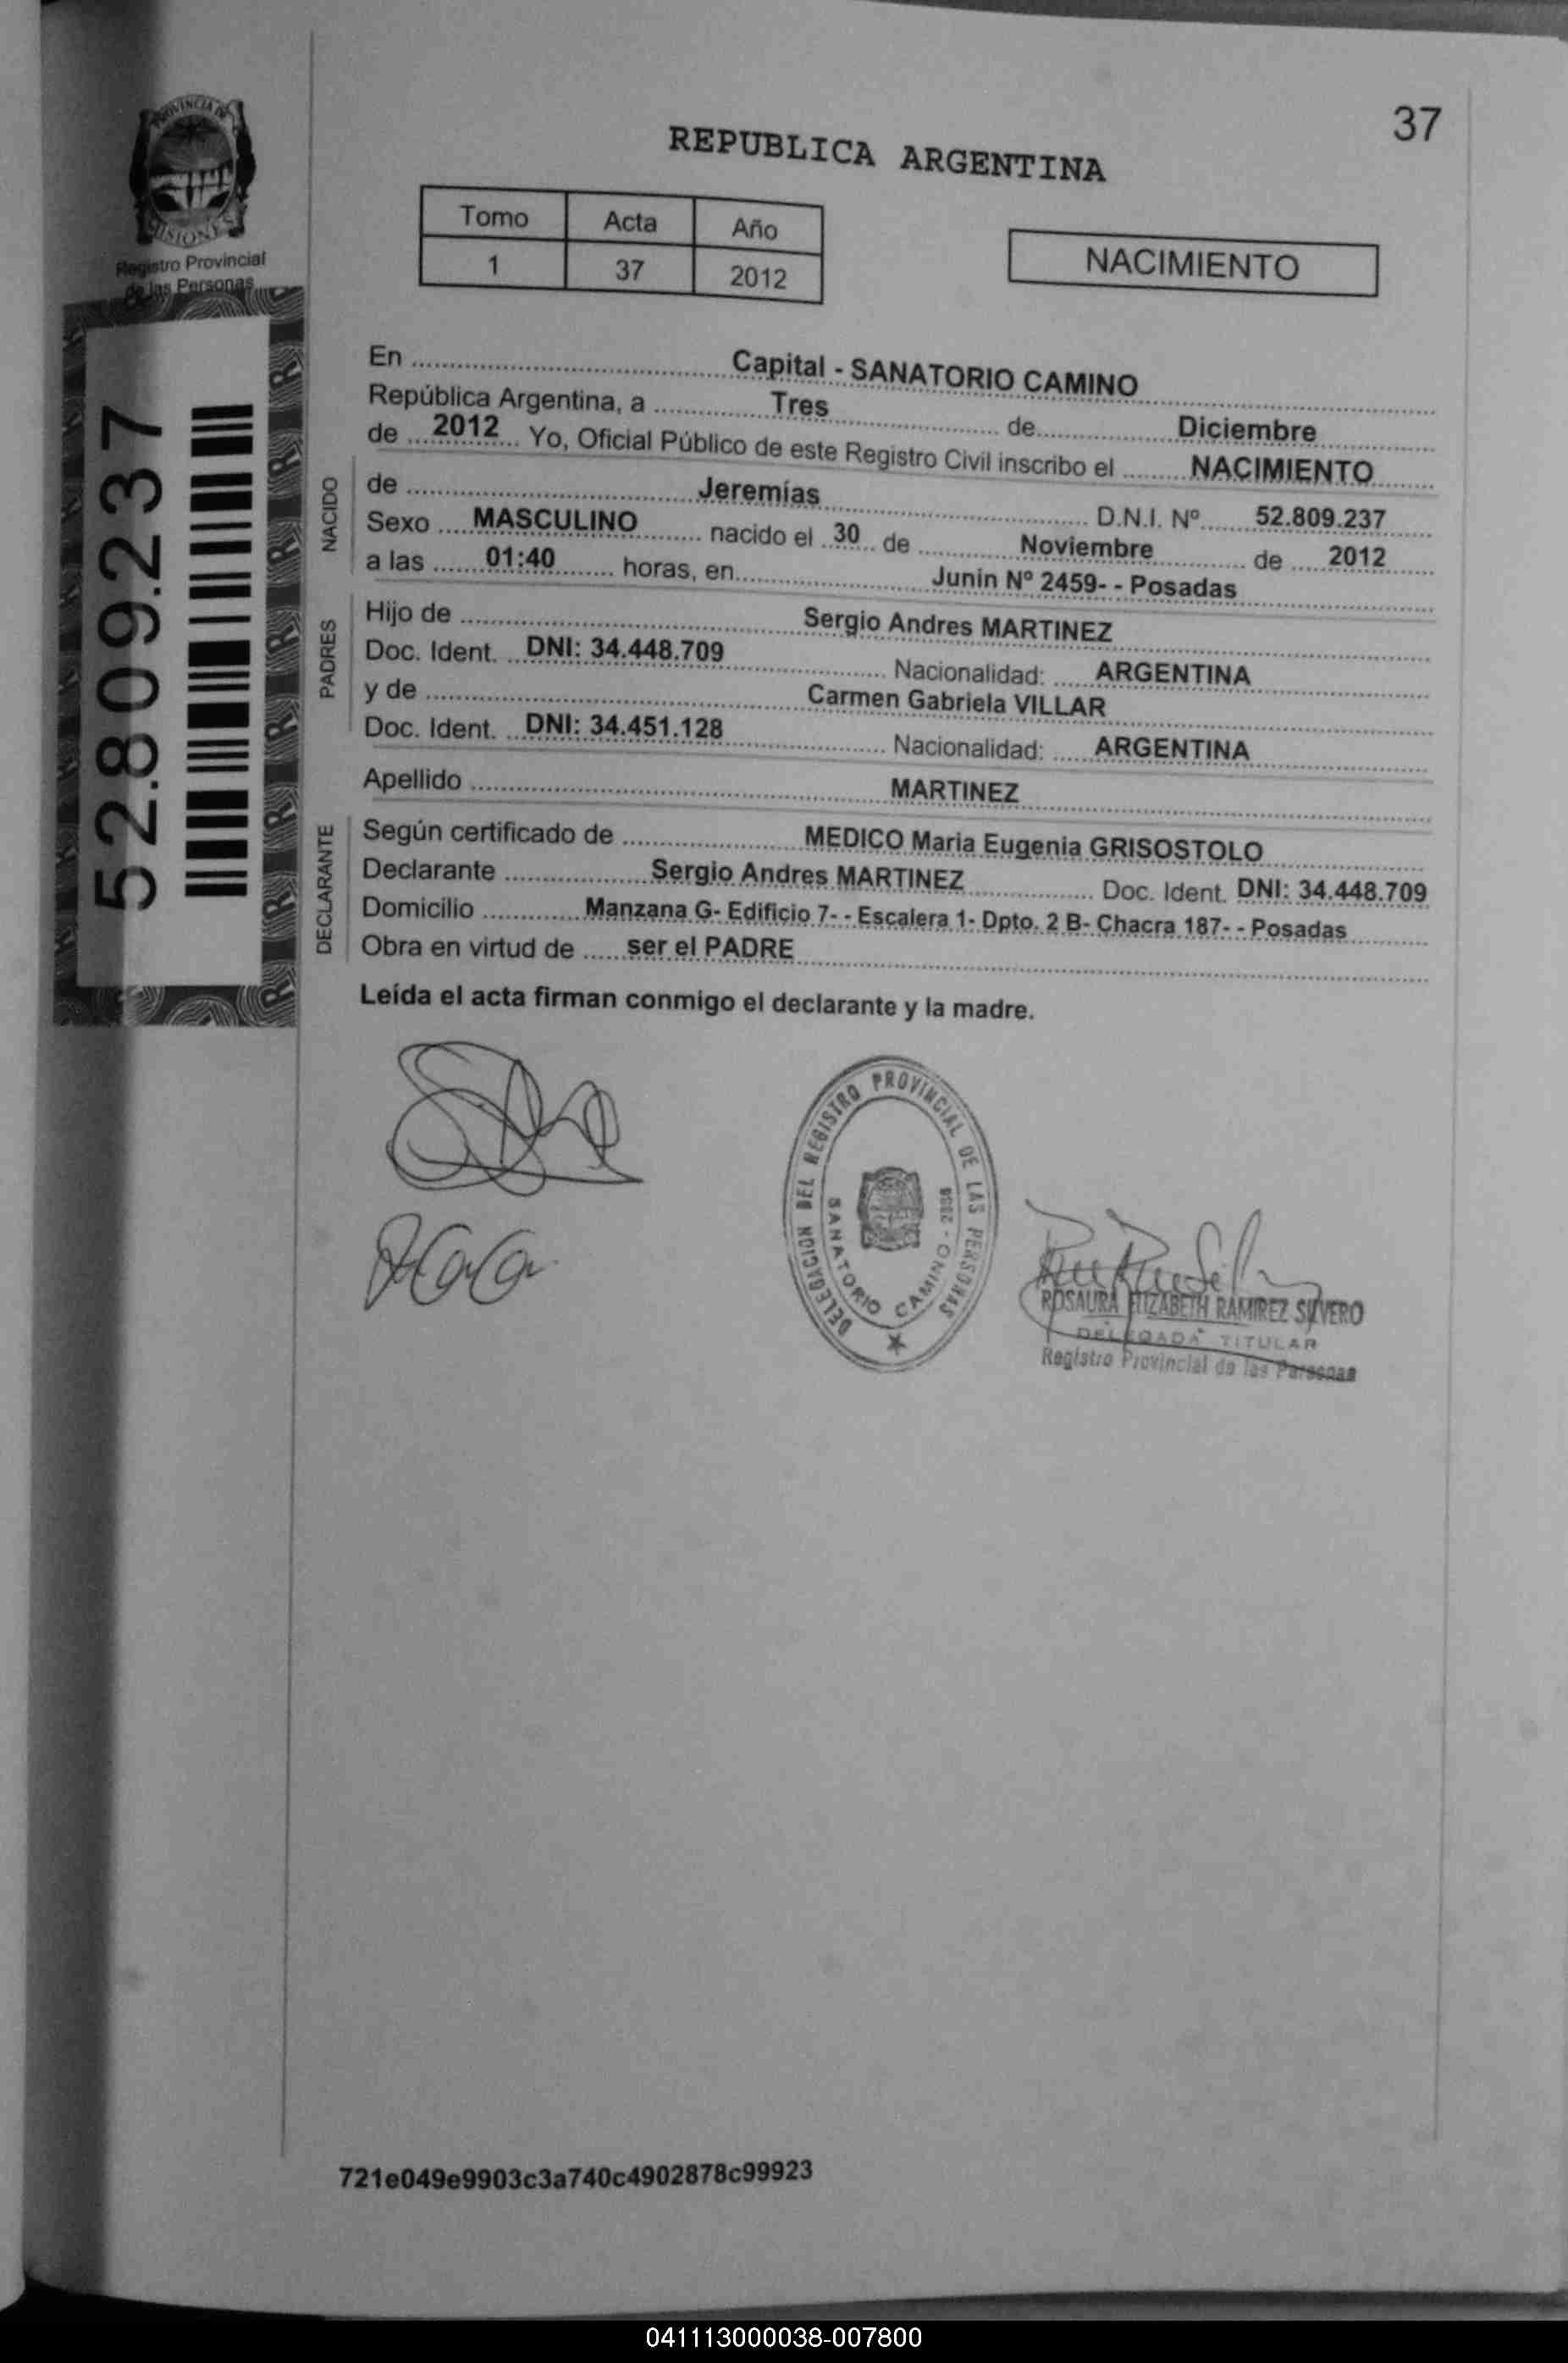 37
PROVINCIA DE
MISIONES
Registro Provincial
de las Personas
REPUBLICA ARGENTINA
Tomo Acta Año
1 37 2012
NACIMIENTO
52.809.237
En Capital - SANATORIO CAMINO
República Argentina, a Tres de Diciembre
de 2012 Yo, Oficial Público de este Registro Civil inscribo el NACIMIENTO
NACIDO
de Jeremías D.N.I. Nº 52.809.237
Sexo MASCULINO nacido el 30 de Noviembre de 2012
a las 01:40 horas, en Junin Nº 2459- - Posadas
PADRES
Hijo de Sergio Andres MARTINEZ
Doc. Ident. DNI: 34.448.709 Nacionalidad: ARGENTINA
y de Carmen Gabriela VILLAR
Doc. Ident. DNI: 34.451.128 Nacionalidad: ARGENTINA
Apellido MARTINEZ
DECLARANTE
Según certificado de MEDICO Maria Eugenia GRISOSTOLO
Declarante Sergio Andres MARTINEZ Doc. Ident. DNI: 34.448.709
Domicilio Manzana G- Edificio 7- - Escalera 1- Dpto. 2 B- Chacra 187- - Posadas
Obra en virtud de ser el PADRE
Leída el acta firman conmigo el declarante y la madre.
DELEGACION DEL REGISTRO PROVINCIAL DE LAS PERSONAS
SANATORIO CAMINO -
ROSAURA ELIZABETH RAMIREZ SILVERO
DELEGADA TITULAR
Registro Provincial de las Personas
721e049e9903c3a740c4902878c99923
041113000038-007800